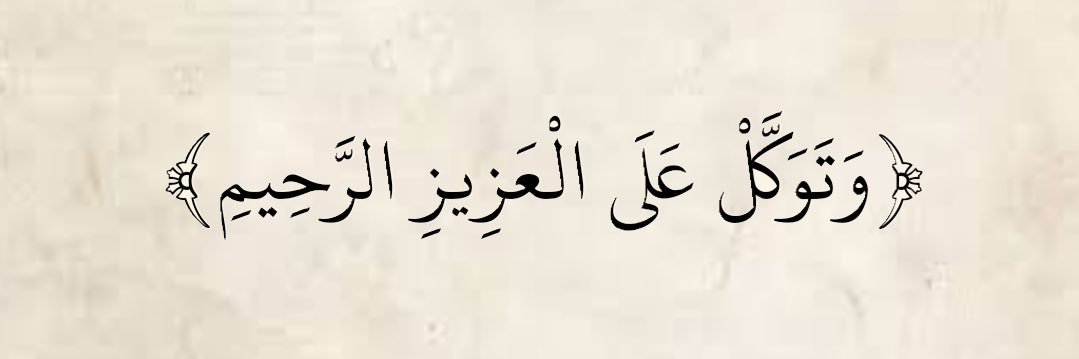 ﴿وَتَوَكَّلْ عَلَى الْعَزِيزِ الرَّحِيمِ﴾